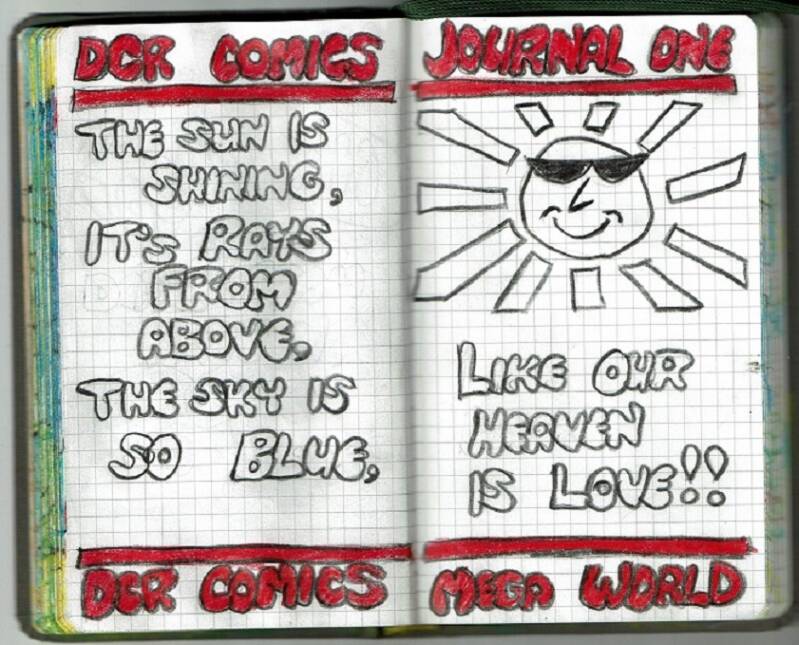 DCR COMICS
THE SUN IS
SHINING,
IT'S RAYS
FROM
ABOVE,
THE SKY IS
SO BLUE,
DCR COMICS
JOURNAL ONE
LIKE OUR
HEAVEN
IS LOVE!!
MEGA WORLD